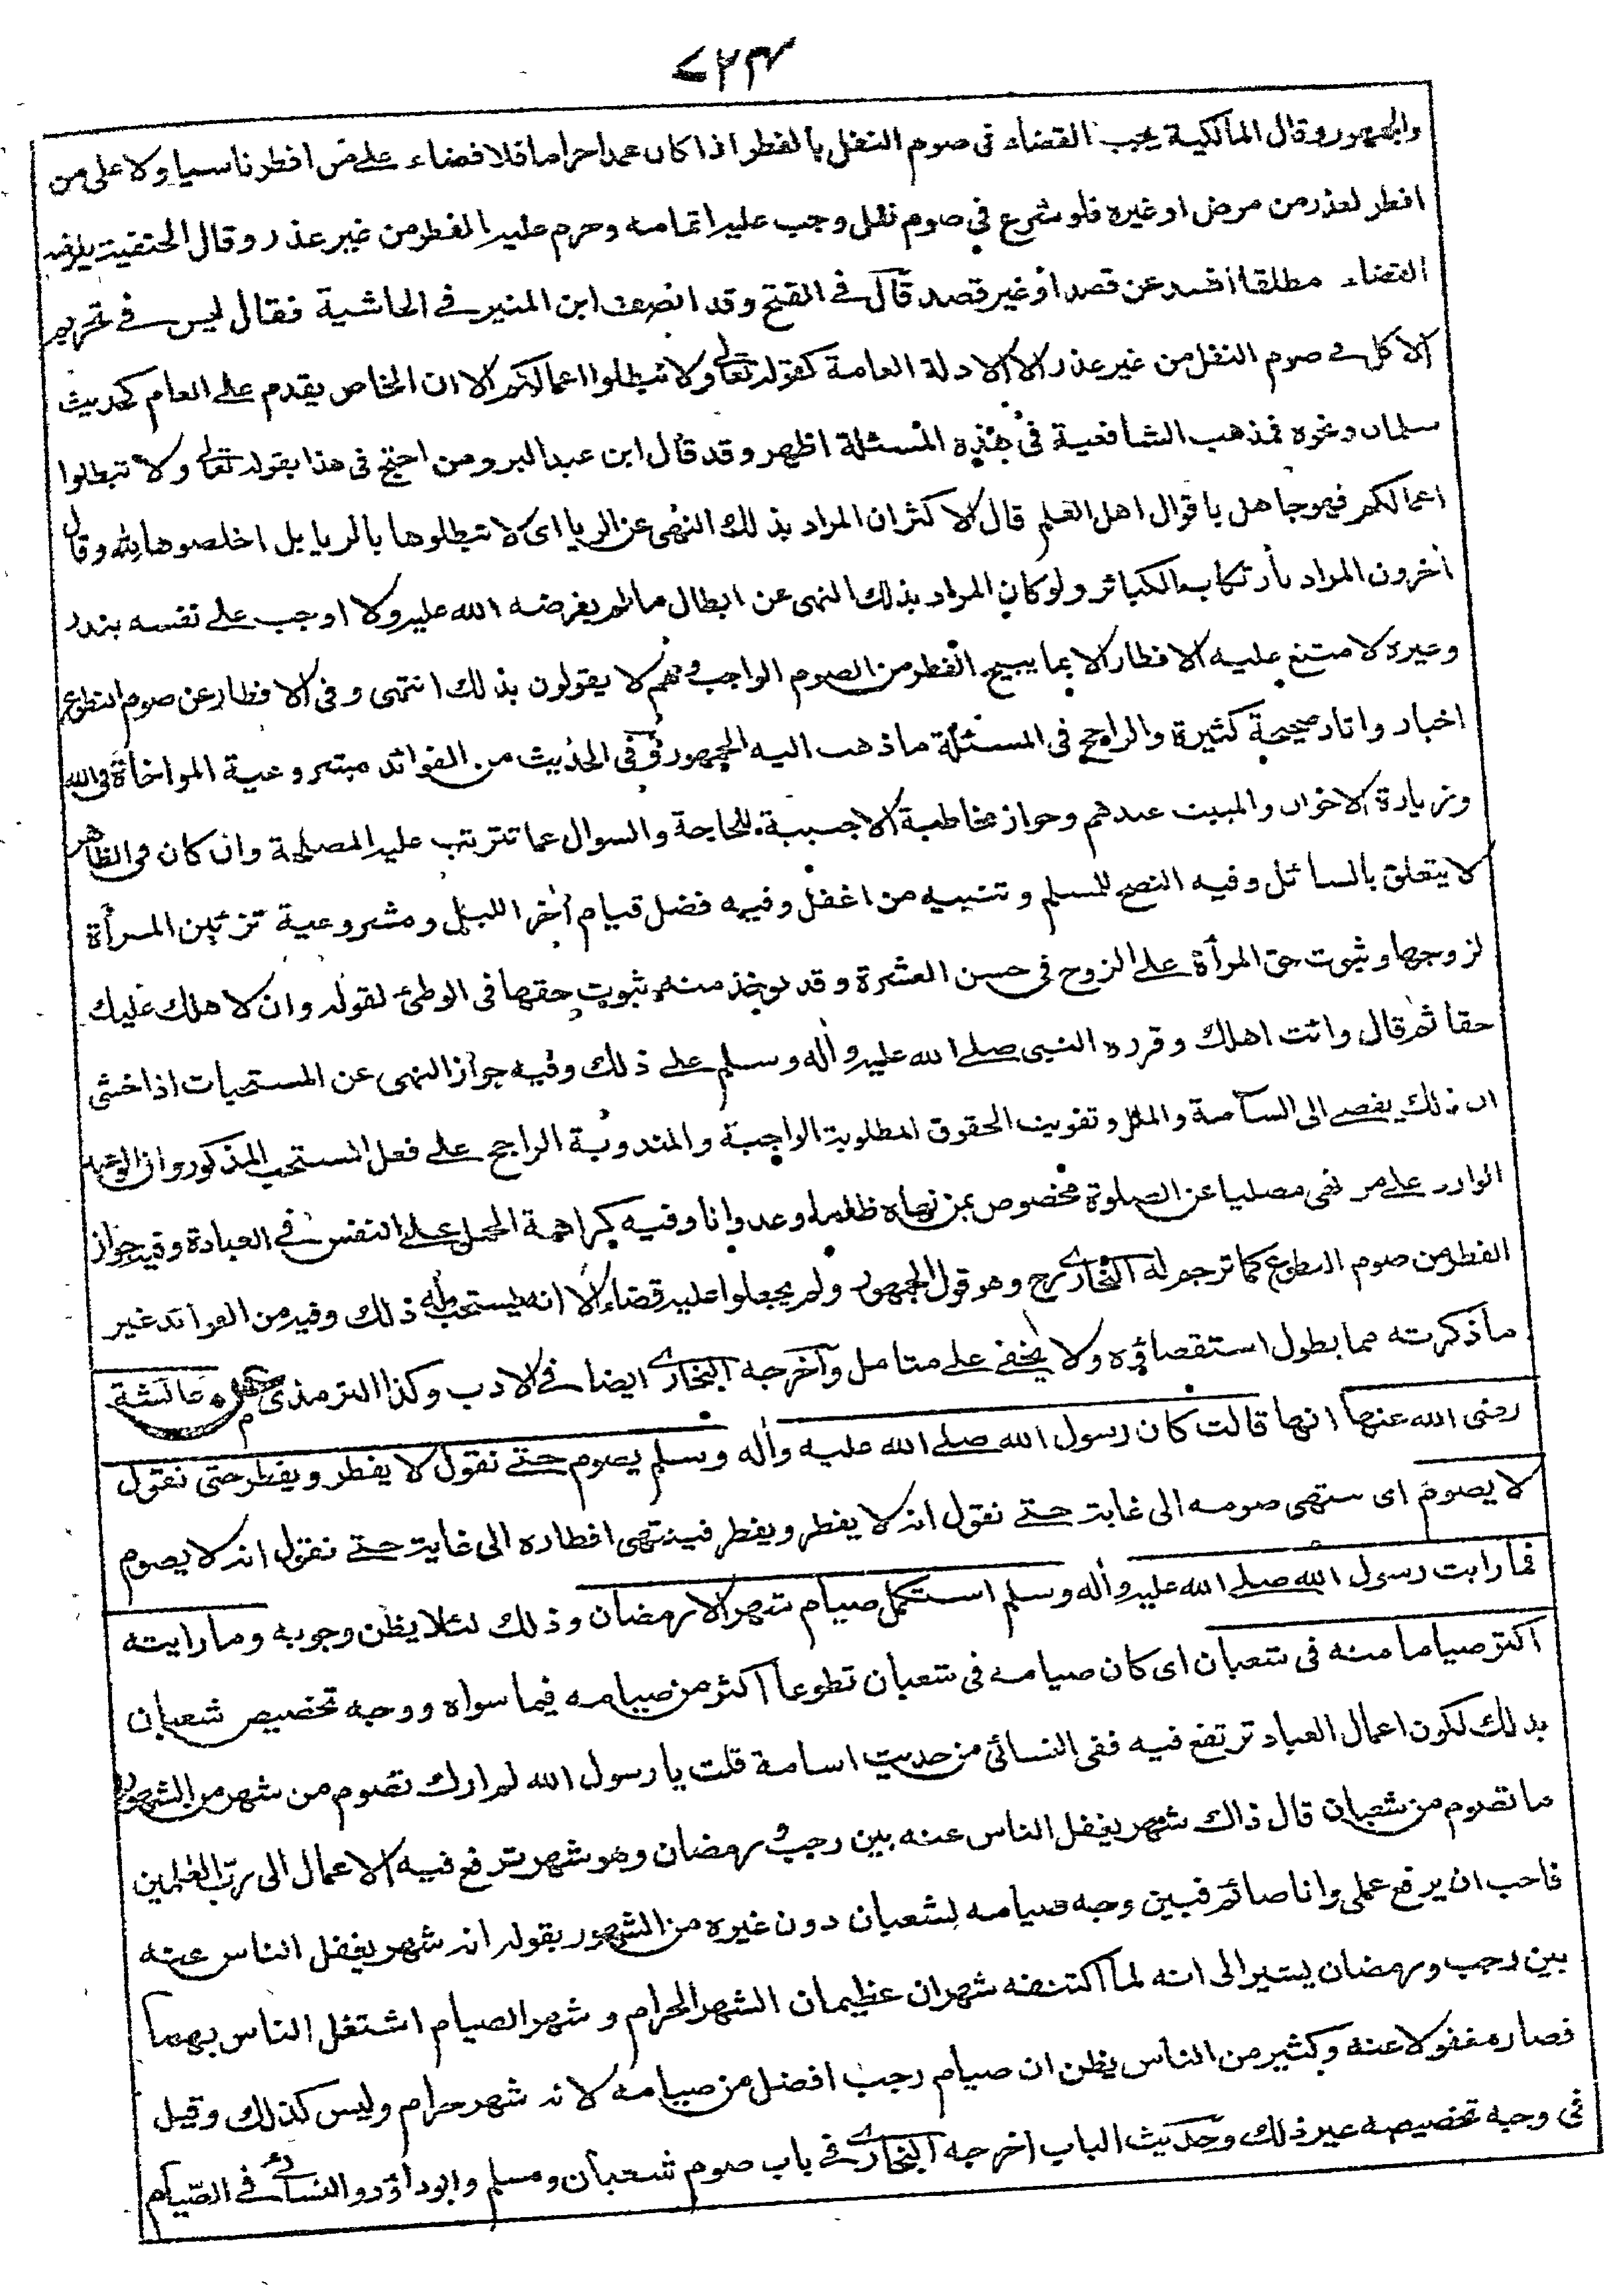 ٧٢٣
والجمهور وقال المالكية يجب القضاء فى صوم النفل بالفطر اذا كان عمدا حراما فلا قضاء على من افطر ناسيا ولا على من
افطر لعذر من مرض او غيره فلو شرع فى صوم نفل وجب عليه اتمامه وحرم عليه الفطر من غير عذر وقال الحنفية يلزمه
القضاء مطلقا افسد عن قصد او غير قصد قال فى الفتح وقد انصف ابن المنير فى الحاشية فقال ليس فى تحريم
الاكل فى صوم النفل من غير عذر الا الادلة العامة كقوله تعالى ولا تبطلوا اعمالكم الا ان الخاص يقدم على العام كحديث
سلمان ونحوه فمذهب الشافعية فى هذه المسئلة اظهر وقد قال ابن عبد البر ومن احتج فى هذا بقوله تعالى ولا تبطلوا
اعمالكم فهو جاهل باقوال اهل العلم قال الاكثر ان المراد بذلك النهى عن الريا اى لا تبطلوها بالريا بل اخلصوها لله وقال
أخرون المراد بأرتكاب الكبائر ولو كان المراد بذلك النهى عن ابطال مالم يفرضه الله عليه ولا اوجب على نفسه بنذر
وغيره لامتنع عليه الافطار الا بما يبيح الفطر من الصوم الواجب وهم لا يقولون بذلك انتهى وفى الافطار عن صوم التطوع
اخبار واثار صحيحة كثيرة والراجح فى المسئلة ما ذهب اليه الجمهور وفى الحديث من الفوائد مشروعية المواخاة فى الله
وزيارة الاخوان والمبيت عندهم وجواز مخاطبة الاجنبية للحاجة والسوال عما تترتب عليه المصلحة وان كان فى الظاهر
لا يتعلق بالسائل وفيه النصح للمسلم وتنبيه من اغفل وفيه فضل قيام أخر الليل ومشروعية تزئين المرأة
لزوجها وثبوت حق المرأة على الزوج فى حسن العشرة وقد يوخذ منه ثبوت حقها فى الوطئ لقوله وان لاهلك عليك
حقا ثم قال وائت اهلك وقرره النبى صلى الله عليه وأله وسلم على ذلك وفيه جواز النهى عن المستحبات اذا خشى
ان ذلك يفضے الى السآمة والملل وتفويت الحقوق المطلوبة الواجبة والمندوبة الراجح على فعل المستحب المذكور وان الوعيد
الوارد على من نهى مصليا عن الصلوة مخصوص بمن نهاه ظلما وعدوانا وفيه كراهة الحمل على النفس فى العبادة وفيه جواز
الفطر من صوم التطوع كما ترجم له البخارى رح وهو قول الجمهور ولم يجعلوا عليه قضاء الا انه يستحب له ذلك وفيه من الفوائد غير
ما ذكرته مما يطول استقصائه ولا يخفى على متامل وآخرجه البخارى ايضا فى الادب وكذا الترمذى عن عائشة
رضى الله عنها انها قالت كان رسول الله صلى الله عليه وأله وسلم يصوم حتے نقول لا يفطر ويفطر حتى نقول
لا يصوم اى ينتهى صومه الى غاية حتے نقول انه لا يفطر ويفطر فينتهى افطاره الى غاية حتے نقول انه لا يصوم
فما رايت رسول الله صلى الله عليه وأله وسلم استكمل صيام شهر الا رمضان وذلك لئلا يظن وجوبه وما رايته
اكثر صياما منه فى شعبان اى كان صيامه فى شعبان تطوعا اكثر من صيامه فيما سواه ووجه تخصيص شعبان
بذلك لكون اعمال العباد ترتفع فيه ففى النسائى من حديث اسامة قلت يا رسول الله لم ارك تصوم من شهر من الشهور
ما تصوم من شعبان قال ذاك شهر يغفل الناس عنه بين رجب ورمضان وهو شهر ترفع فيه الاعمال الى رب العلمين
فاحب ان يرفع عملى وانا صائم فبين وجه صيامه لشعبان دون غيره من الشهور بقوله انه شهر يغفل الناس عنه
بين رجب ورمضان يشير الى انه لما اكتنفه شهران عظيمان الشهر الحرام وشهر الصيام اشتغل الناس بهما
فصار مغفولا عنه وكثير من الناس يظن ان صيام رجب افضل من صيامه لانه شهر حرام وليس كذلك وقيل
فى وجه تخصيصه غير ذلك وحديث الباب اخرجه البخارى فى باب صوم شعبان ومسلم وابو داؤد والنسائى فى الصيام